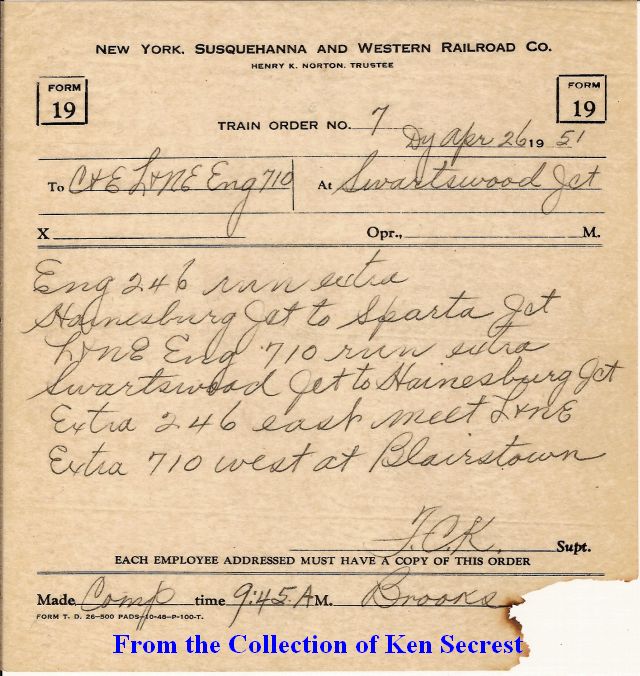 NEW YORK, SUSQUEHANNA AND WESTERN RAILROAD CO.
HENRY K. NORTON, TRUSTEE
FORM 19
FORM 19
TRAIN ORDER NO. 7
Dy Apr 26 19 51
To C&E L&NE Eng 710 At Swartswood Jct
X Opr., M.
Eng 246 run extra
Hainesburg Jct to Sparta Jct
L&NE Eng 710 run extra
Swartswood Jct to Hainesburg Jct
Extra 246 east meet L&NE
Extra 710 west at Blairstown
F.C.K. Supt.
EACH EMPLOYEE ADDRESSED MUST HAVE A COPY OF THIS ORDER
Made Comp time 9:45 A M. Brooks
FORM T. D. 26-500 PADS-10-48-P-100-T.
From the Collection of Ken Secrest